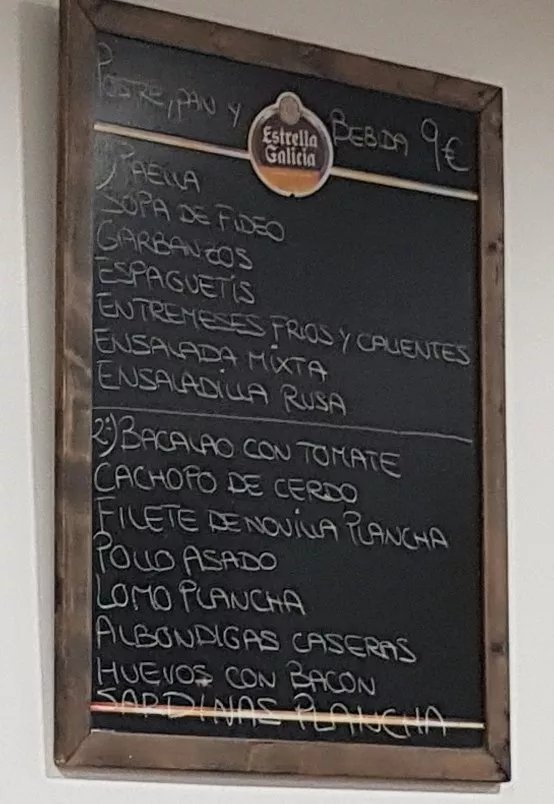 POSTRE, PAN Y BEBIDA 9€
Estrella
Galicia
) PAELLA
SOPA DE FIDEO
GARBANZOS
ESPAGUETÍS
ENTREMESES FRIOS Y CALIENTES
ENSALADA MIXTA
ENSALADILLA RUSA
2º) BACALAO CON TOMATE
CACHOPO DE CERDO
FILETE DE NOVILLA PLANCHA
POLLO ASADO
LOMO PLANCHA
ALBONDIGAS CASERAS
HUEVOS CON BACON
SARDINAS PLANCHA